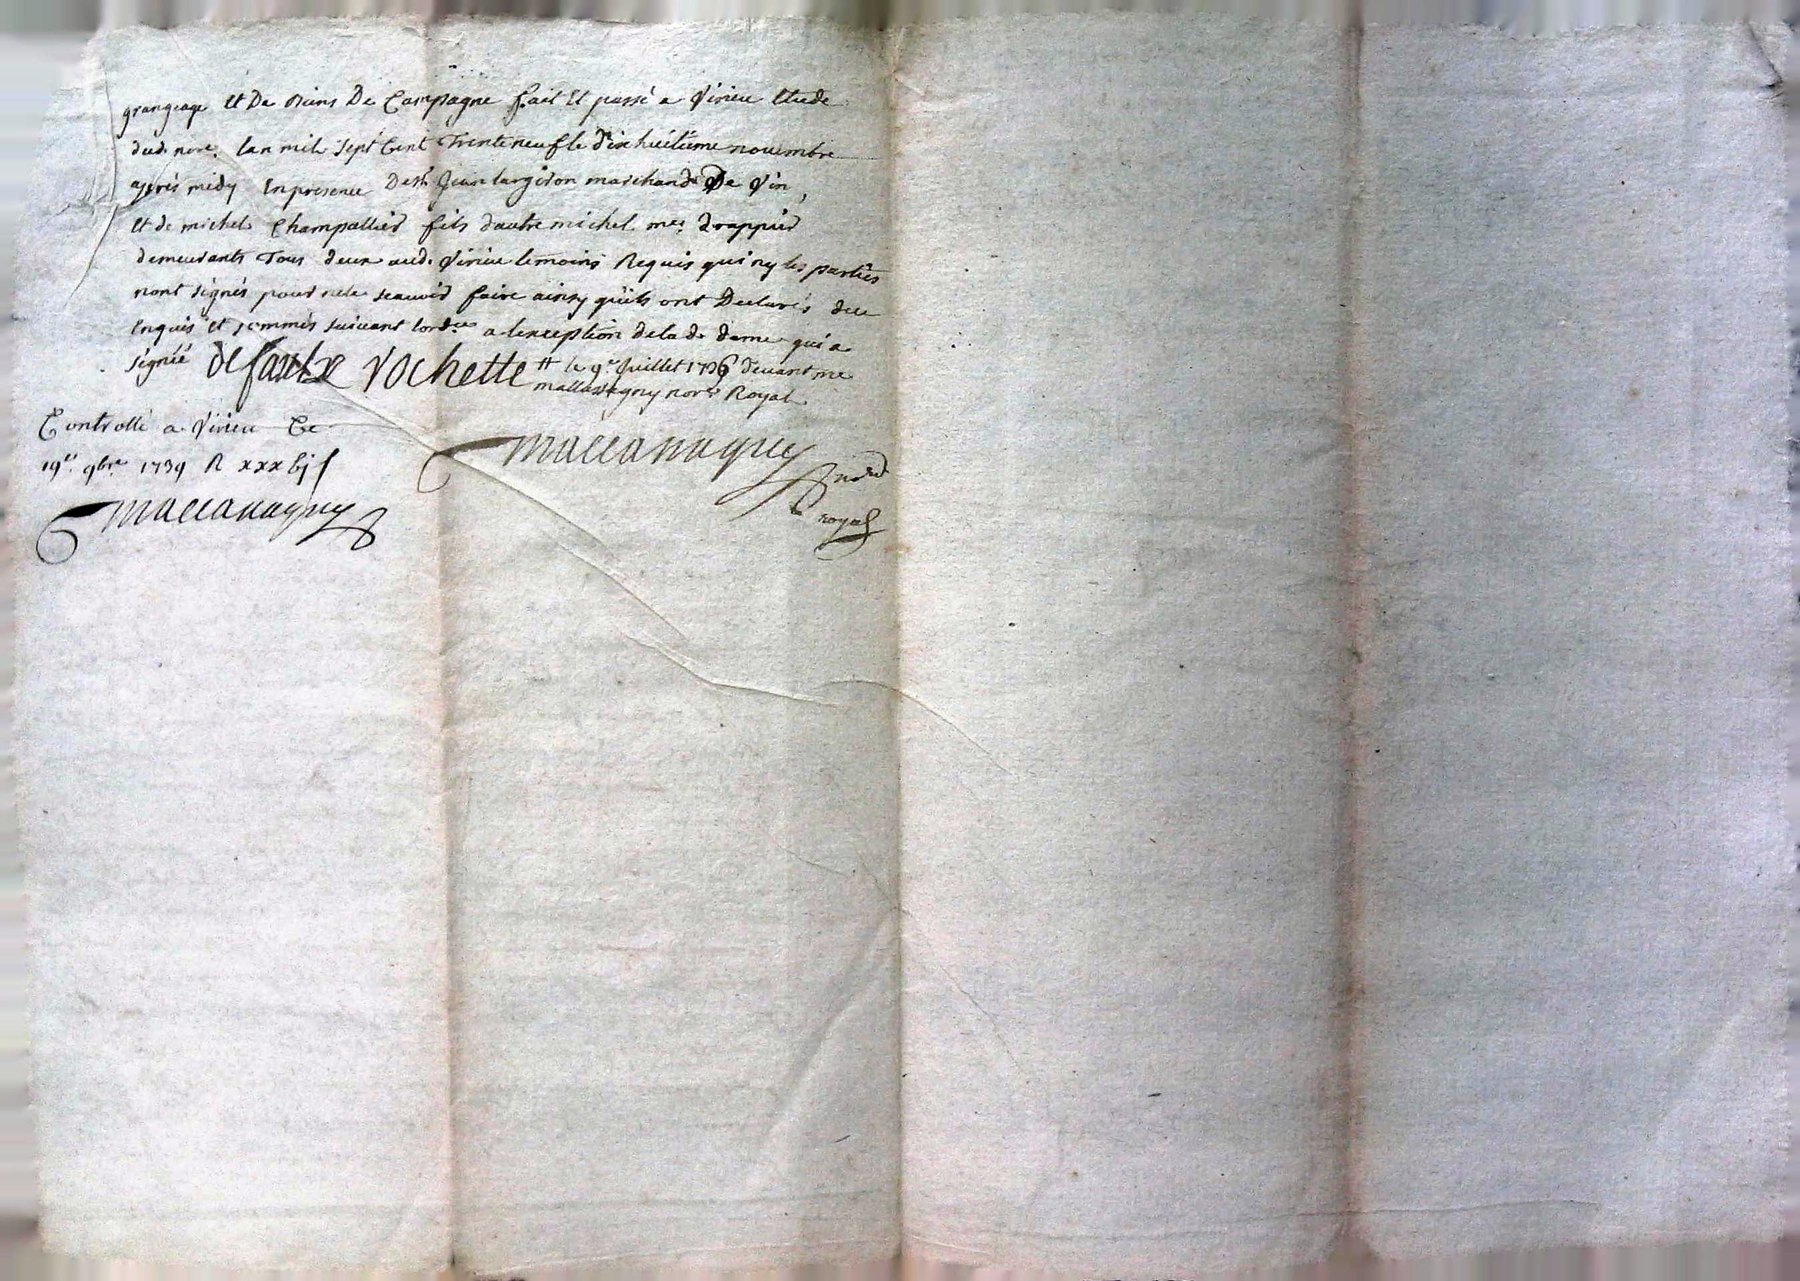 grangeage et De biens De Campagne fait et passé a Virieu Etude
dud. nore. lan mil sept Cent Trente neuf le dix huitième novembre
après midy En presence De sr. Jean largiron marchand De vin,
et de michel Champallier fils d'autre michel me. drappier
demeurants Tous deux aud. Virieu temoins Requis qui ny les parties
nont signés pour ne le scauoir faire ainsy quils ont Declarés de ce
Enquis et sommés suivant lordce a lexception de la de dame qui a
signée de fautre Vochette # le 9e Juillet 1736 devant me
nore Royal
Controllé a Virieu Ce
19e. 9bre 1739 R xxxbjs
nore
royal